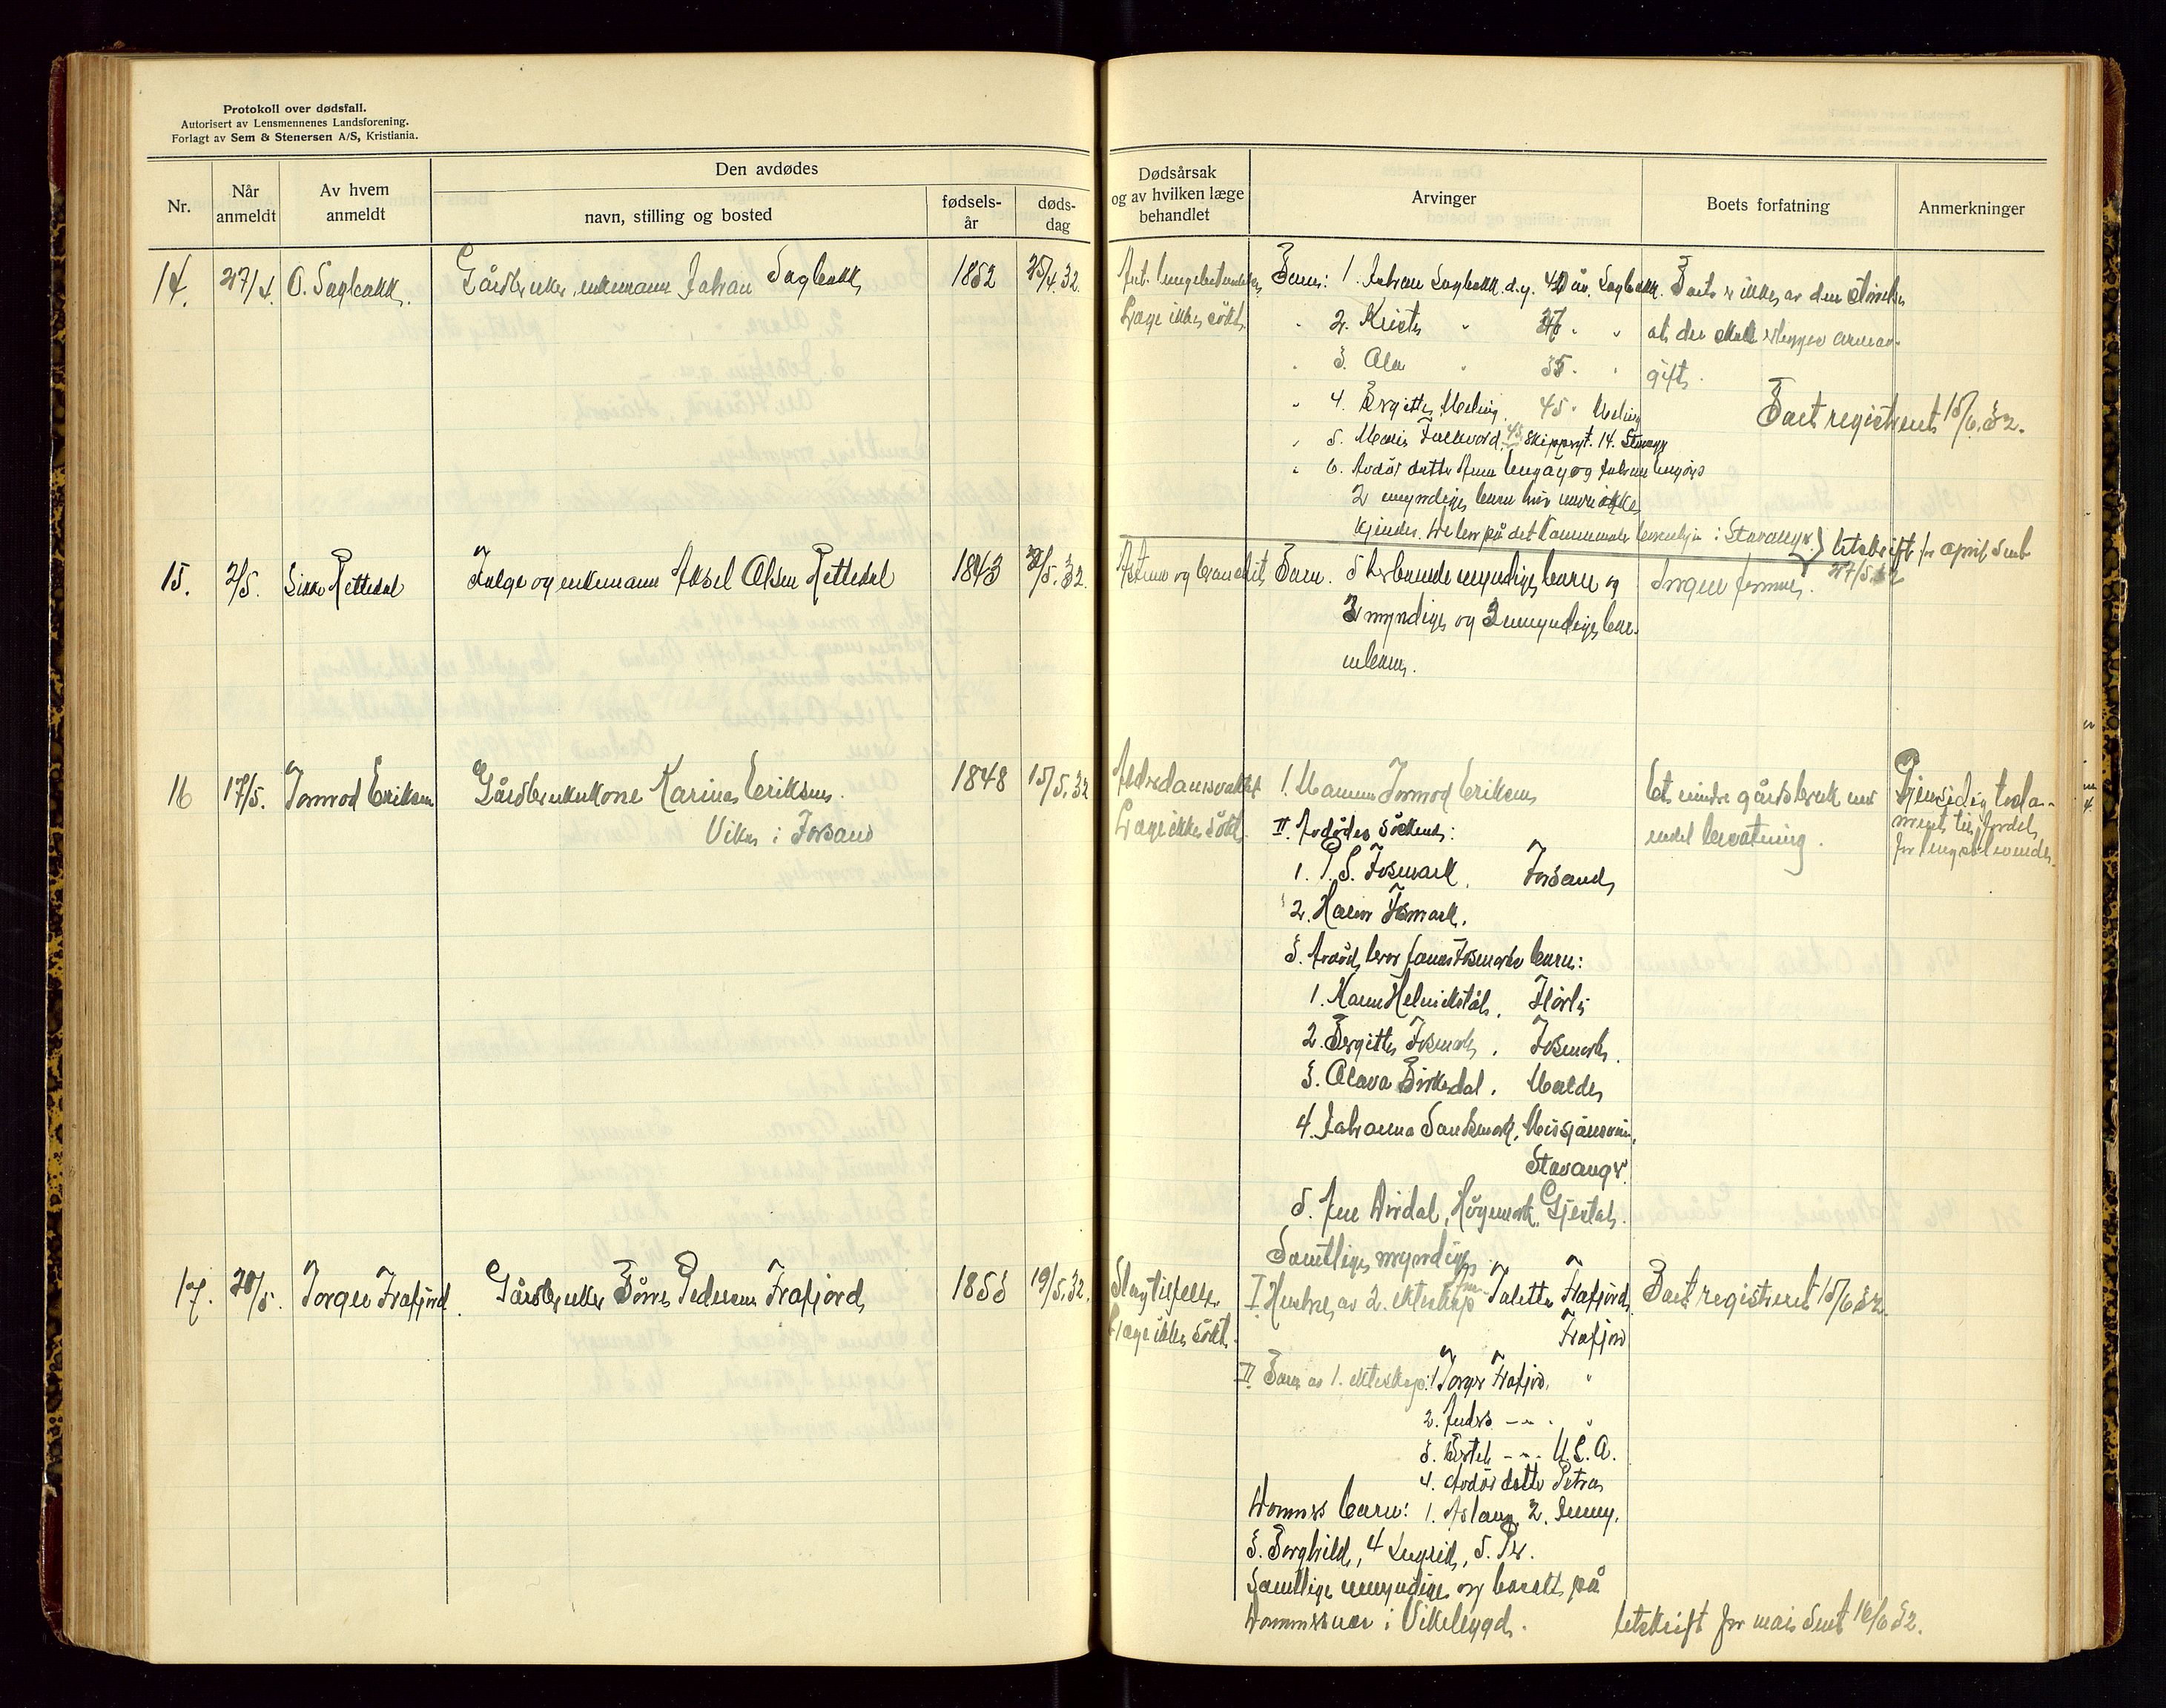 Protokoll over dødsfall.
Autorisert av Lensmennenes Landsforening.
Forlagt av Sem & Stenersen A/S, Kristiania.
Nr.
Når anmeldt
Av hvem anmeldt
Den avdødes
navn, stilling og bosted
fødselsår
dødsdag
Dødsårsak og av hvilken læge behandlet
Arvinger
Boets forfatning
Anmerkninger
14. 27/4. O. Sagbakk. Gårdbruker, enkemann Johan Sagbakk 1852 25/4.32.
Læge ikke søkt.
Barn: 1. Johan Sagbakk d.y. år. Sagbakk.
" 2. " "
" 3. Ola " 35. "
" 4. Bergitte Meling. 45. Meling
" 5. Maria Skippergt. 14.
" 6. Avdød datter
2 umyndige barn hvis navn ikke
kjendes. De bor på det i Stavanger.
Boet er ikke av den
at der skal erlegges arveav-
gift.
Boet registrert 15/6.32.
Utskrift for april sendt
27/5.32
15. 2/5. Rettedal og enkemann Aksel Olsen Rettedal 1843
og bronchit
Barn. 5 levende myndige barn og
myndige og umyndige bar-
nebarn.
Ingen formue.
16 17/5. Tormod Eriksen Gårdbrukerkone Karina Eriksen. 1848 15/5.32
Vika i Forsand
Alderdomssvakhet
Læge ikke søkt.
1. Mannen Tormod Eriksen
II. Avdødes søsken:
1. P. S. Fosmark, Forsand
2. Fosmark.
3. Avdød bror Fosmarks barn:
1. Helmikstøl, Flørli
2. Bergitte Fosmark, Fosmark.
3. Olava Birkedal, Molde
4. Johanna Sandsmark,
Stavanger.
5. Ane Dirdal, Høgemork, Gjestal.
Samtlige myndige
Et mindre gårdsbruk med
endel besætning.
Gjensidig testa-
ment til fordel
for lengstlevende.
17. 20/5. Torger Frafjord. Gårdbruker Børre Pedersen Frafjord 1853 19/5.32.
Slagtilfelle.
Læge ikke søkt.
I Hustru av 2. ekteskap Taletta Frafjord,
Frafjord
II. Barn av 1. ekteskap: 1. Torger Frafjord, "
2. Anders — " — "
3. — " — U.S.A.
4. Avdød datter Petra
Dommers barn: 1. Aslaug, 2. Jenny,
3. Borghild, 4 Ingrid, 5. Per.
Samtlige umyndige og bosatt på
i Vikebygd.
Boet registrert 15/6 32.
Utskrift for mai sendt 16/6 32.